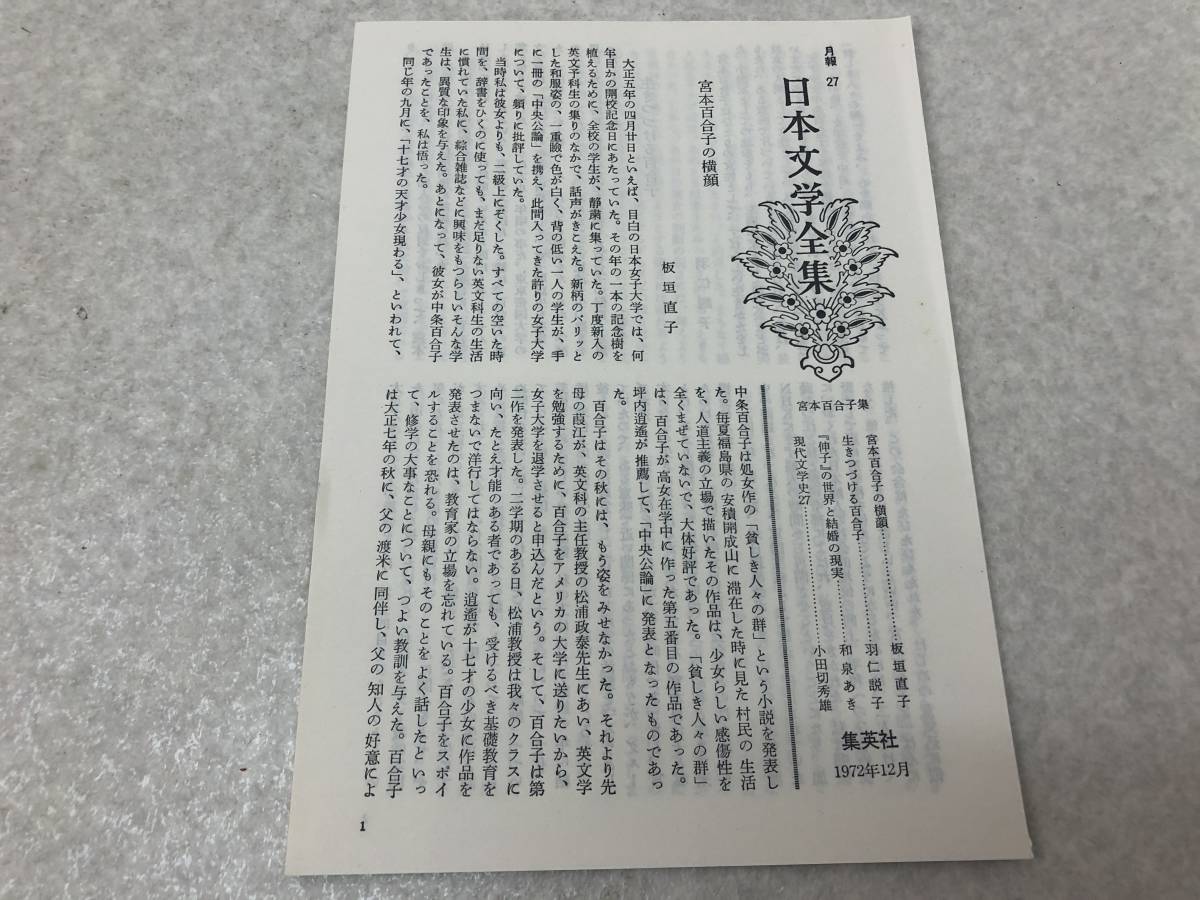 月報 27
日本文学全集
宮本百合子集
宮本百合子の横顔…………板垣直子
生きつづける百合子…………羽仁説子
『伸子』の世界と結婚の現実………和泉あき
現代文学史27…………小田切秀雄
集英社
1972年12月
宮本百合子の横顔
板垣直子
大正五年の四月廿日といえば、目白の日本女子大学では、何
年目かの開校記念日にあたっていた。その年の一本の記念樹を
植えるために、全校の学生が、静粛に集っていた。丁度新入の
英文予科生の集りのなかで、話声がきこえた。新柄のパリッと
した和服姿の、一重瞼で色が白く、背の低い一人の学生が、手
に一冊の「中央公論」を携え、此間入ってきた許りの女子大学
について、頻りに批評していた。
当時私は彼女よりも、二級上にぞくした。すべての空いた時
間を、辞書をひくのに使っても、まだ足りない英文科生の生活
に慣れていた私に、綜合雑誌などに興味をもつらしいそんな学
生は、異質な印象を与えた。あとになって、彼女が中条百合子
であったことを、私は悟った。
同じ年の九月に、「十七才の天才少女現わる」、といわれて、
中条百合子は処女作の「貧しき人々の群」という小説を発表し
た。毎夏福島県の安積開成山に滞在した時に見た村民の生活
を、人道主義の立場で描いたその作品は、少女らしい感傷性を
全くまぜていないで、大体好評であった。「貧しき人々の群」
は、百合子が高女在学中に作った第五番目の作品であった。
坪内逍遥が推薦して、「中央公論」に発表となったものであっ
た。
百合子はその秋には、もう姿をみせなかった。それより先
母の葭江が、英文科の主任教授の松浦政泰先生にあい、英文学
を勉強するために、百合子をアメリカの大学に送りたいから、
女子大学を退学させると申込んだという。そして、百合子は第
二作を発表した。二学期のある日、松浦教授は我々のクラスに
向い、たとえ才能のある者であっても、受けるべき基礎教育を
つまないで洋行してはならない。逍遥が十七才の少女に作品を
発表させたのは、教育家の立場を忘れている。百合子をスポイ
ルすることを恐れる。母親にもそのことをよく話したといっ
て、修学の大事なことについて、つよい教訓を与えた。百合子
は大正七年の秋に、父の渡米に同伴し、父の知人の好意によ
1